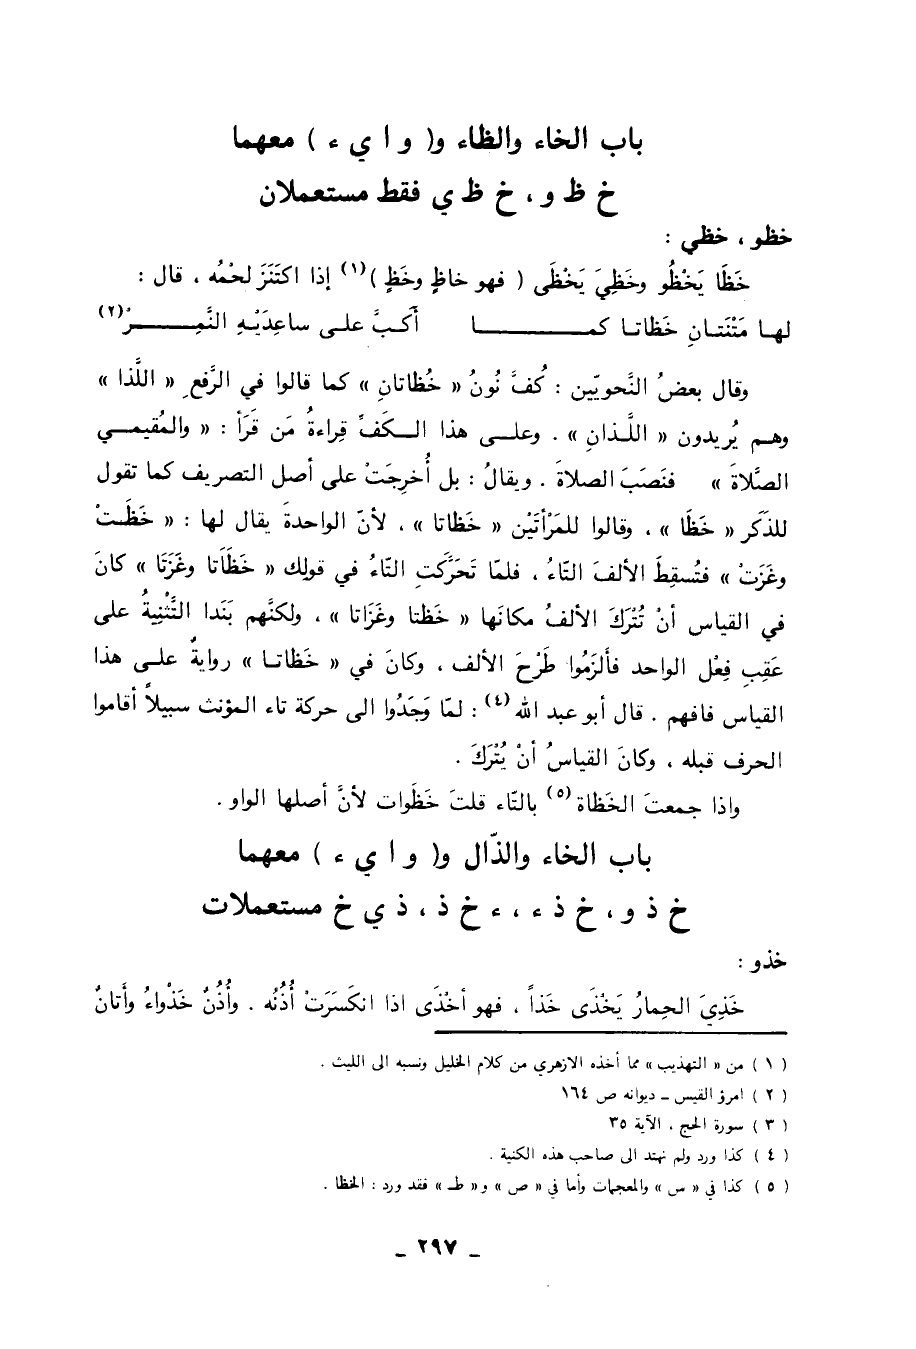 باب الخاء والظاء و( و ا ي ء ) معهما
خ ظ و ، خ ظ ي فقط مستعملان
خظو ، خظي :
خَظَا يَخْظُو وخَظِيَ يَخْظَى ( فهو خاظٍ وخَظٍ )(١) إذا اكتَنَزَ لحْمُه ، قال :
لهـا مَتْنَتـانِ خَظاتـا كمـــــــــا أَكبَّ علـى ساعِدَيْـهِ النَّمِـــــرُ(٢)
وقال بعضُ النَّحويّين : كُفَّ نُونُ « خُظاتانِ » كما قالوا في الرَّفعِ « اللَّذا »
وهـم يُريدون « اللَّـذانِ » . وعلـى هذا الـكَفِّ قِراءةُ مَن قَرَأ : « والمُقيمـي
الصَّلاةَ » فنَصَبَ الصلاةَ . ويقالُ : بل أُخرِجَتْ على أصل التصريف كما تقول
للذَكَر « خَظَا » ، وقالوا للمَرْأتَيْن « خَظاتا » ، لأنّ الواحدةَ يقال لها : « خَظَـتْ
وغَزَتْ » فتُسقِطَ الألفَ التّاءُ ، فلمّا تَحَرَّكَتِ التّاءُ في قولك « خَظَاتا وغَزَتَا » كانَ
في القياس أنْ تُتْرَكَ الألفُ مكانَها « خَظتا وغَزَاتا » ، ولكنَّهم بَنَدا التَّثْنِيةُ على
عَقِبِ فِعْل الواحد فألزَمُوا طَرْحَ الألف ، وكانَ في « خَظاتـا » روايةٌ علـى هذا
القياس فافهم . قال أبو عبد الله(٤) : لمّا وَجَدُوا الى حركة تاء المؤنث سبيلاً أقاموا
الحرف قبله ، وكانَ القياسُ أنْ يُتْرَكَ .
واذا جمعتَ الخَظاة(٥) بالتّاء قلتَ خَظَوات لأنَّ أصلها الواو .
باب الخاء والذّال و( و ا ي ء ) معهما
خ ذ و ، خ ذ ء ، ء خ ذ ، ذ ي خ مستعملات
خذو :
خَذِيَ الحِمارُ يَخْذَى خَذاً ، فهو أخْذَى اذا انكَسَرَتْ أُذُنُه . وأُذُنٌ خَذْواءُ وأَتانٌ
( ١ ) من « التهذيب » مما أخذه الازهري من كلام الخليل ونسبه الى الليث .
( ٢ ) امرؤ القيس ــ ديوانه ص ١٦٤
( ٣ ) سورة الحج ، الآية ٣٥
( ٤ ) كذا ورد ولم نهتد الى صاحب هذه الكنية .
( ٥ ) كذا في « س » والمعجمات وأما في « ص » و « ط » فقد ورد : الخظا .
ــ ٢٩٧ ــ